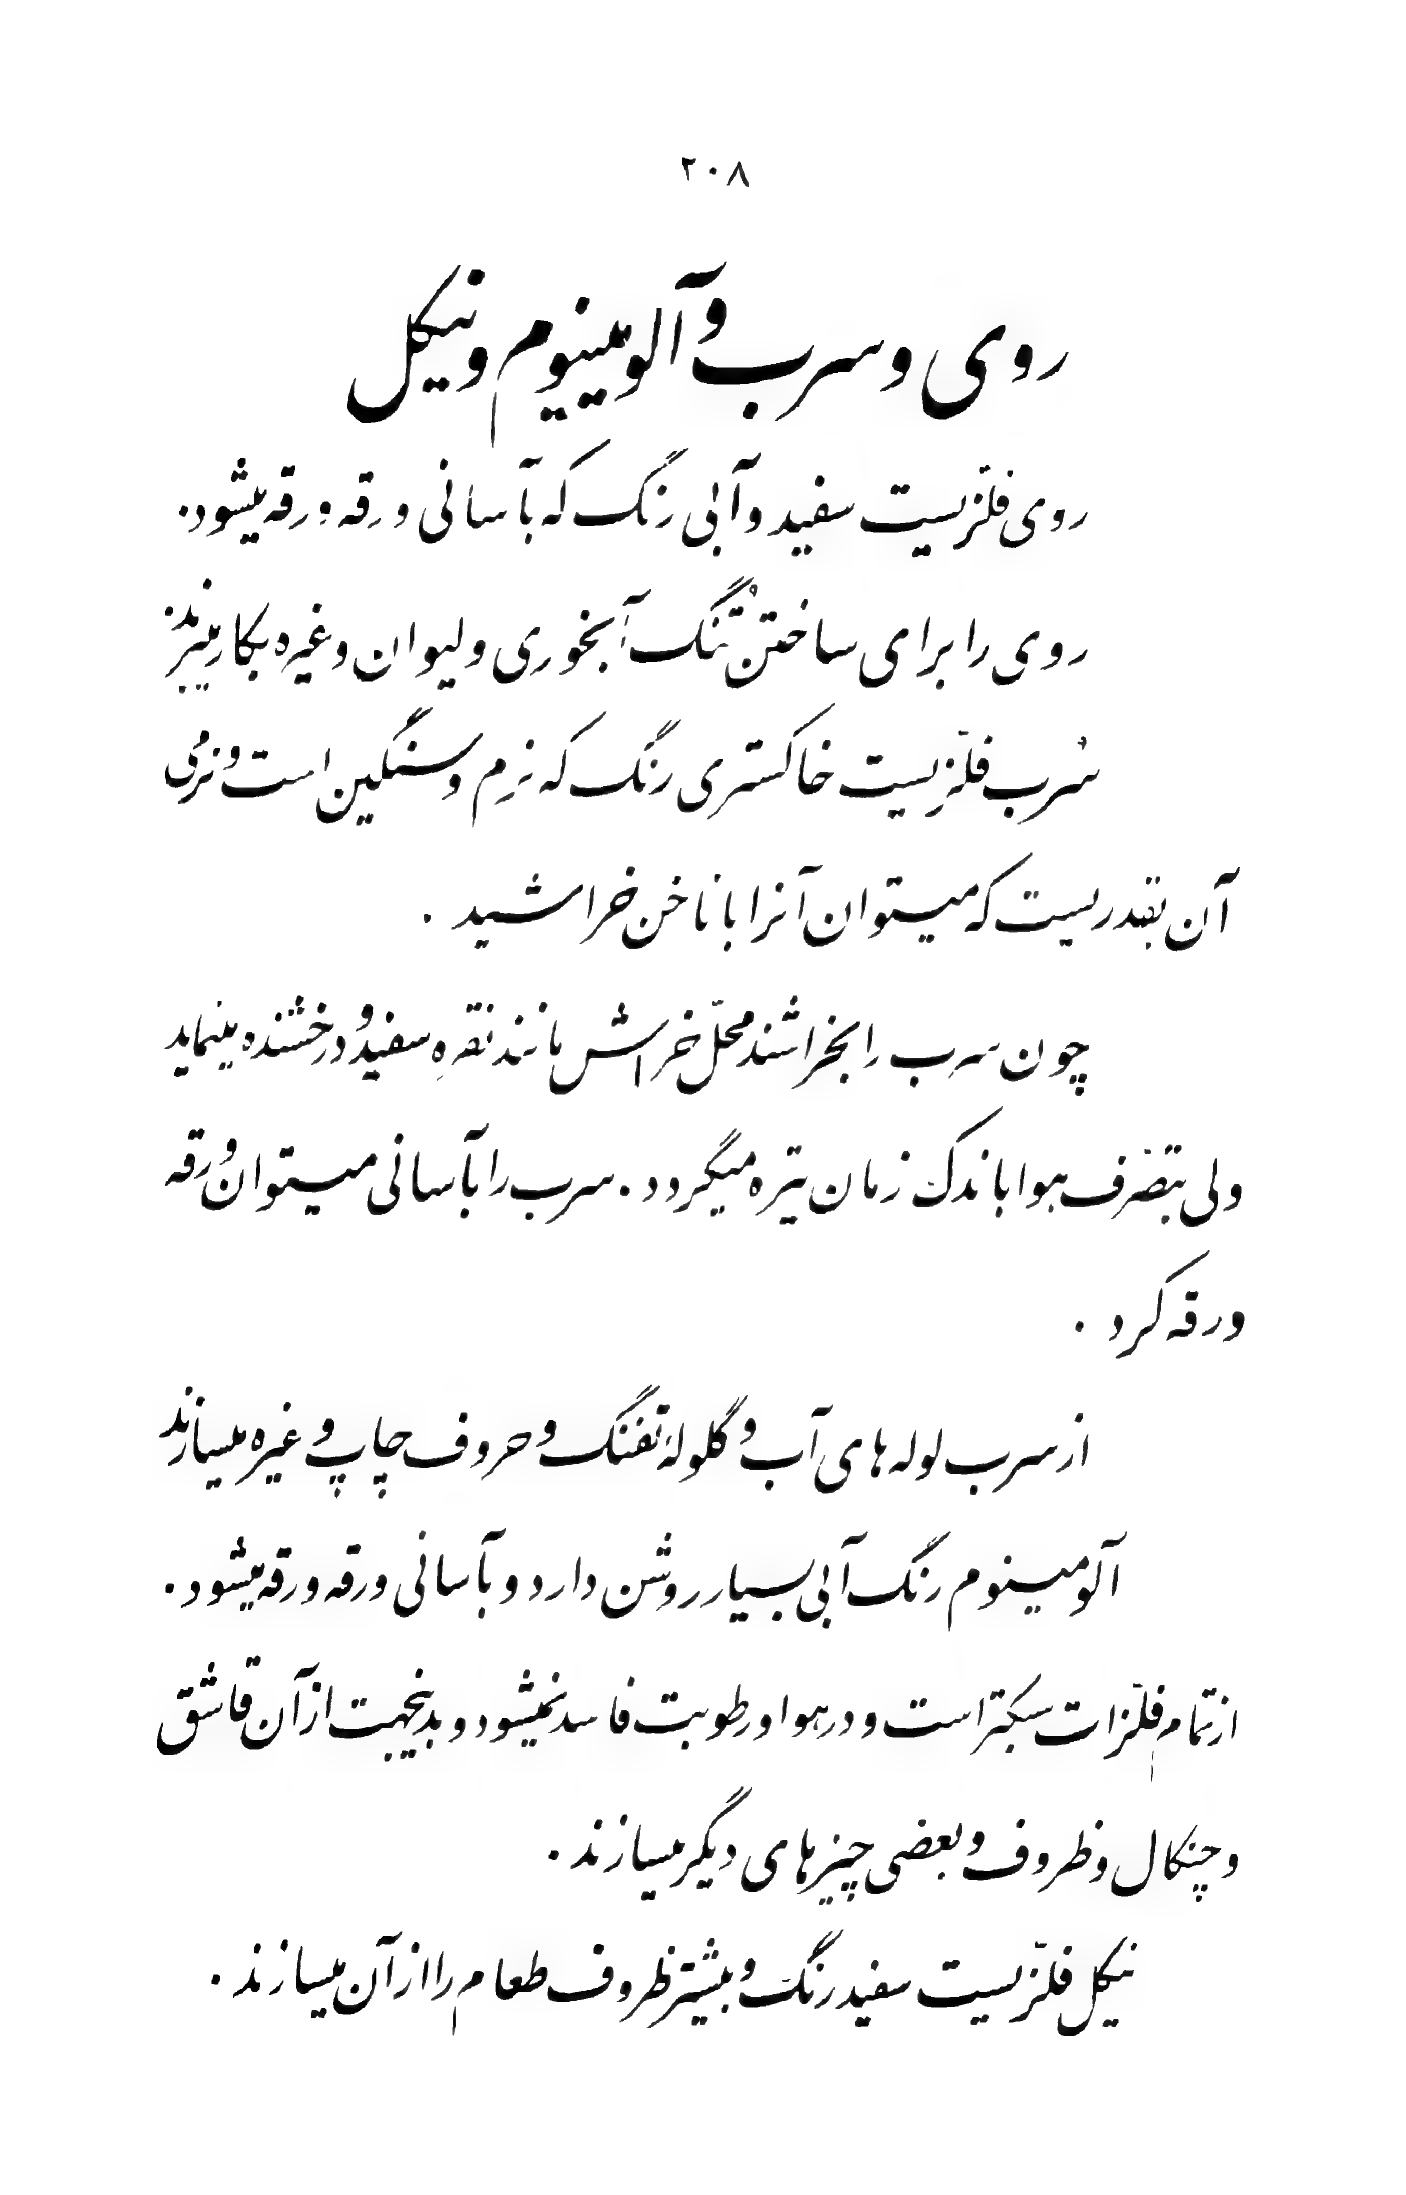 ۲۰۸
روی و سرب و آلومینیوم و نیکل
روی فلزیست سفید و آبی رنگ که بآسانی ورقه ورقه میشود.
روی را برای ساختن تُنگ آبخوری و لیوان و غیره بکار میبرند
سُرب فلزّیست خاکستری رنگ که نرم و سنگین است و نرمی
آن بقدریست که میتوان آنرا با ناخن خراشید .
چون سرب را بخراشند محلّ خراش مانند نقره سفید و درخشنده مینماید
ولی بتصرّف هوا باندک زمان تیره میگردد . سرب را بآسانی میتوان ورقه
ورقه کرد .
از سرب لوله های آب و گلولهٔ تفنگ و حروف چاپ و غیره میسازند
آلومینوم رنگ آبی بسیار روشن دارد و بآسانی ورقه ورقه میشود .
از تمام فلزّات سبکتر است و در هوا و رطوبت فاسد نمیشود و بدینجهت از آن قاشق
و چنکال و ظروف و بعضی چیزهای دیگر میسازند .
نیکل فلزّیست سفید رنگ و بیشتر ظروف طعام را از آن میسازند .